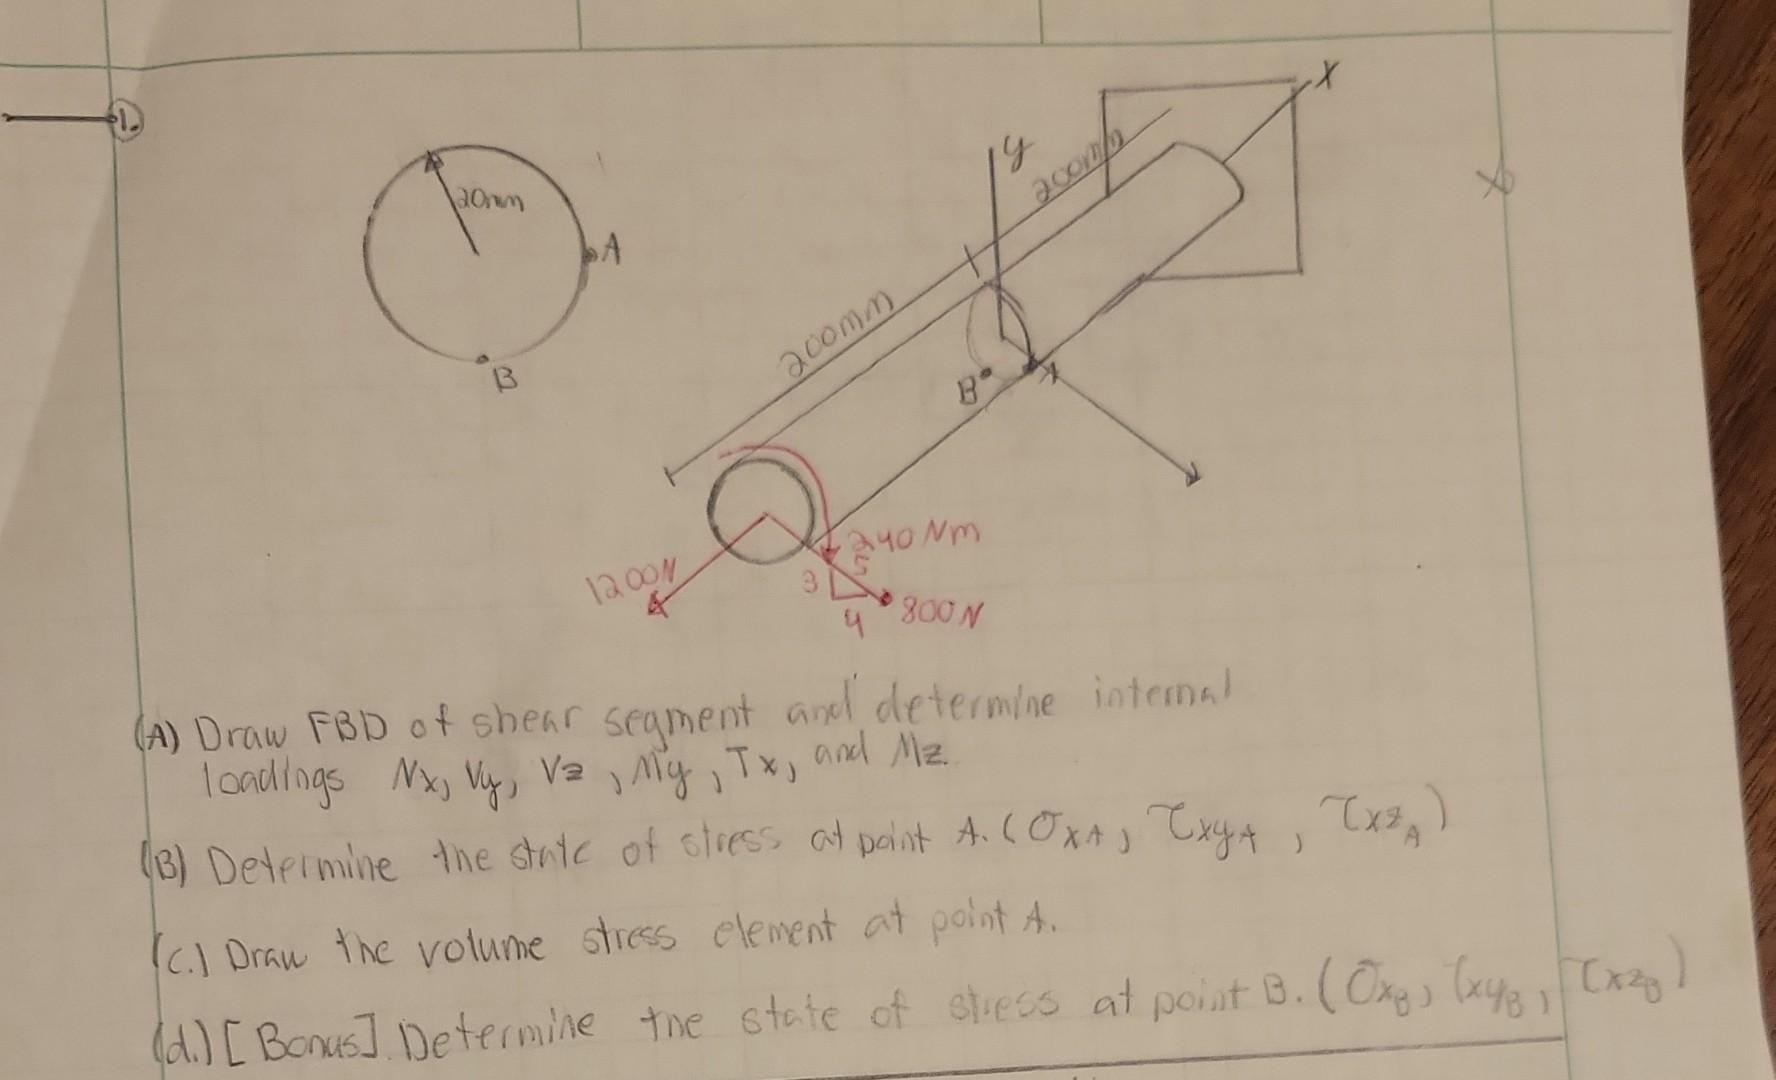 1.
X
y
200mm
20mm
A
200mm
B
B
A
240 Nm
1200N
3
5
4
800N
(A) Draw FBD of shear segment and determine internal
loadings Nx, Vy, Vz, My, Tx, and Mz.
(B) Determine the state of stress at point A. (σxA, τxyA, τxzA)
(C.) Draw the volume stress element at point A.
(d.) [Bonus]. Determine the state of stress at point B. (σxB, τxyB, τxzB)